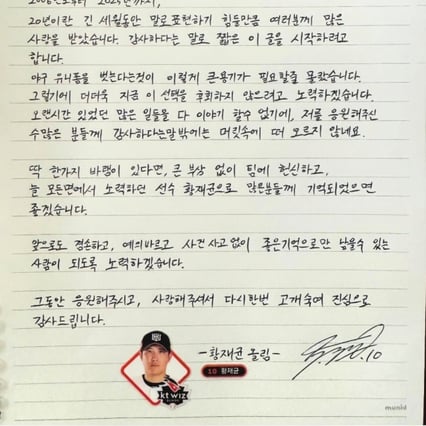 2006년도부터 2025년까지,
20년이란 긴 세월동안 말로표현하기 힘들만큼 여러분께 많은
사랑을 받았습니다. 감사하다는 말로 짧은 이 글을 시작하려고
합니다.
야구 유니폼을 벗는다는것이 이렇게 큰용기가 필요할줄 몰랐습니다.
그렇기에 더더욱 지금 이 선택을 후회하지 않으려고 노력하겠습니다.
오랜시간 있었던 많은 일들을 다 이야기 할수 없기에, 저를 응원해주신
수많은 분들께 감사하다는말밖에는 머릿속에 떠 오르지 않네요.
딱 한가지 바램이 있다면, 큰 부상 없이 팀에 헌신하고,
늘 모든면에서 노력하던 선수 황재균으로 많은분들께 기억되었으면
좋겠습니다.
앞으로도 겸손하고, 예의바르고 사건사고 없이 좋은기억으로만 남을수 있는
사람이 되도록 노력하겠습니다.
그동안 응원해주시고, 사랑해주셔서 다시한번 고개숙여 진심으로
감사드립니다.
-황재균 올림-
10
10 황재균
kt wiz
munid